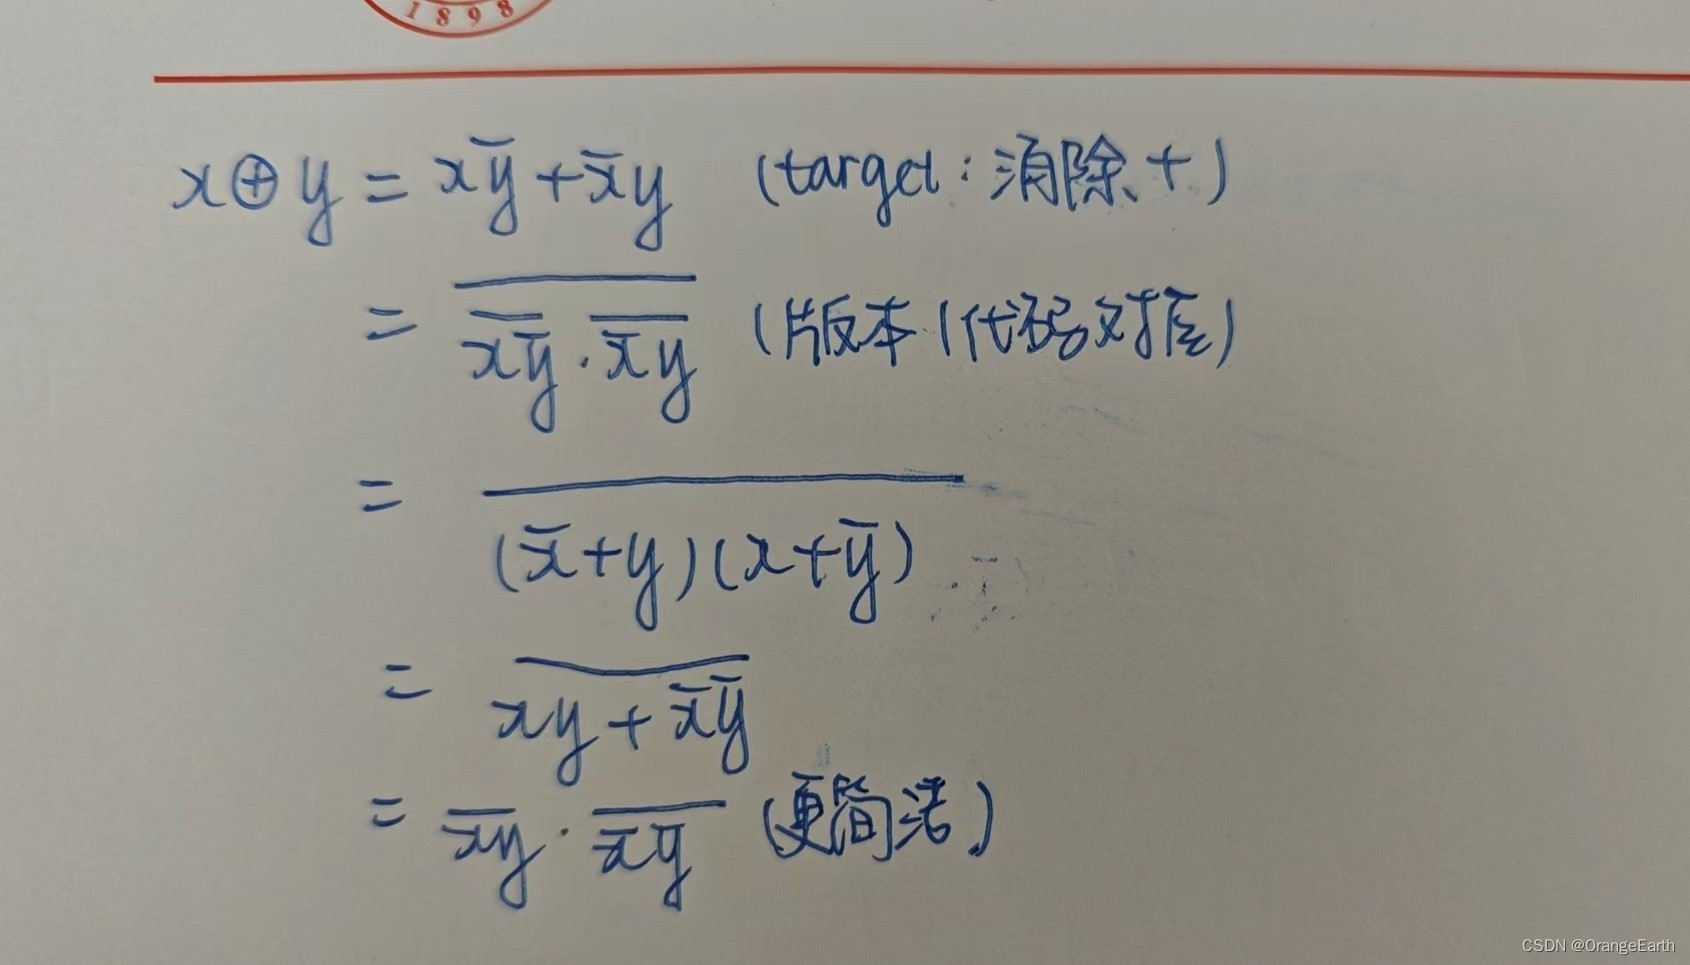 1898
x⊕y = xȳ + x̄y (target: 消除 +)
= \overline{\overline{xȳ} · \overline{x̄y}} (版本1代码对应)
= \overline{(x̄+y)(x+ȳ)}
= \overline{xy + x̄ȳ}
= \overline{xy} · \overline{x̄ȳ} (更简洁)
CSDN @OrangeEarth